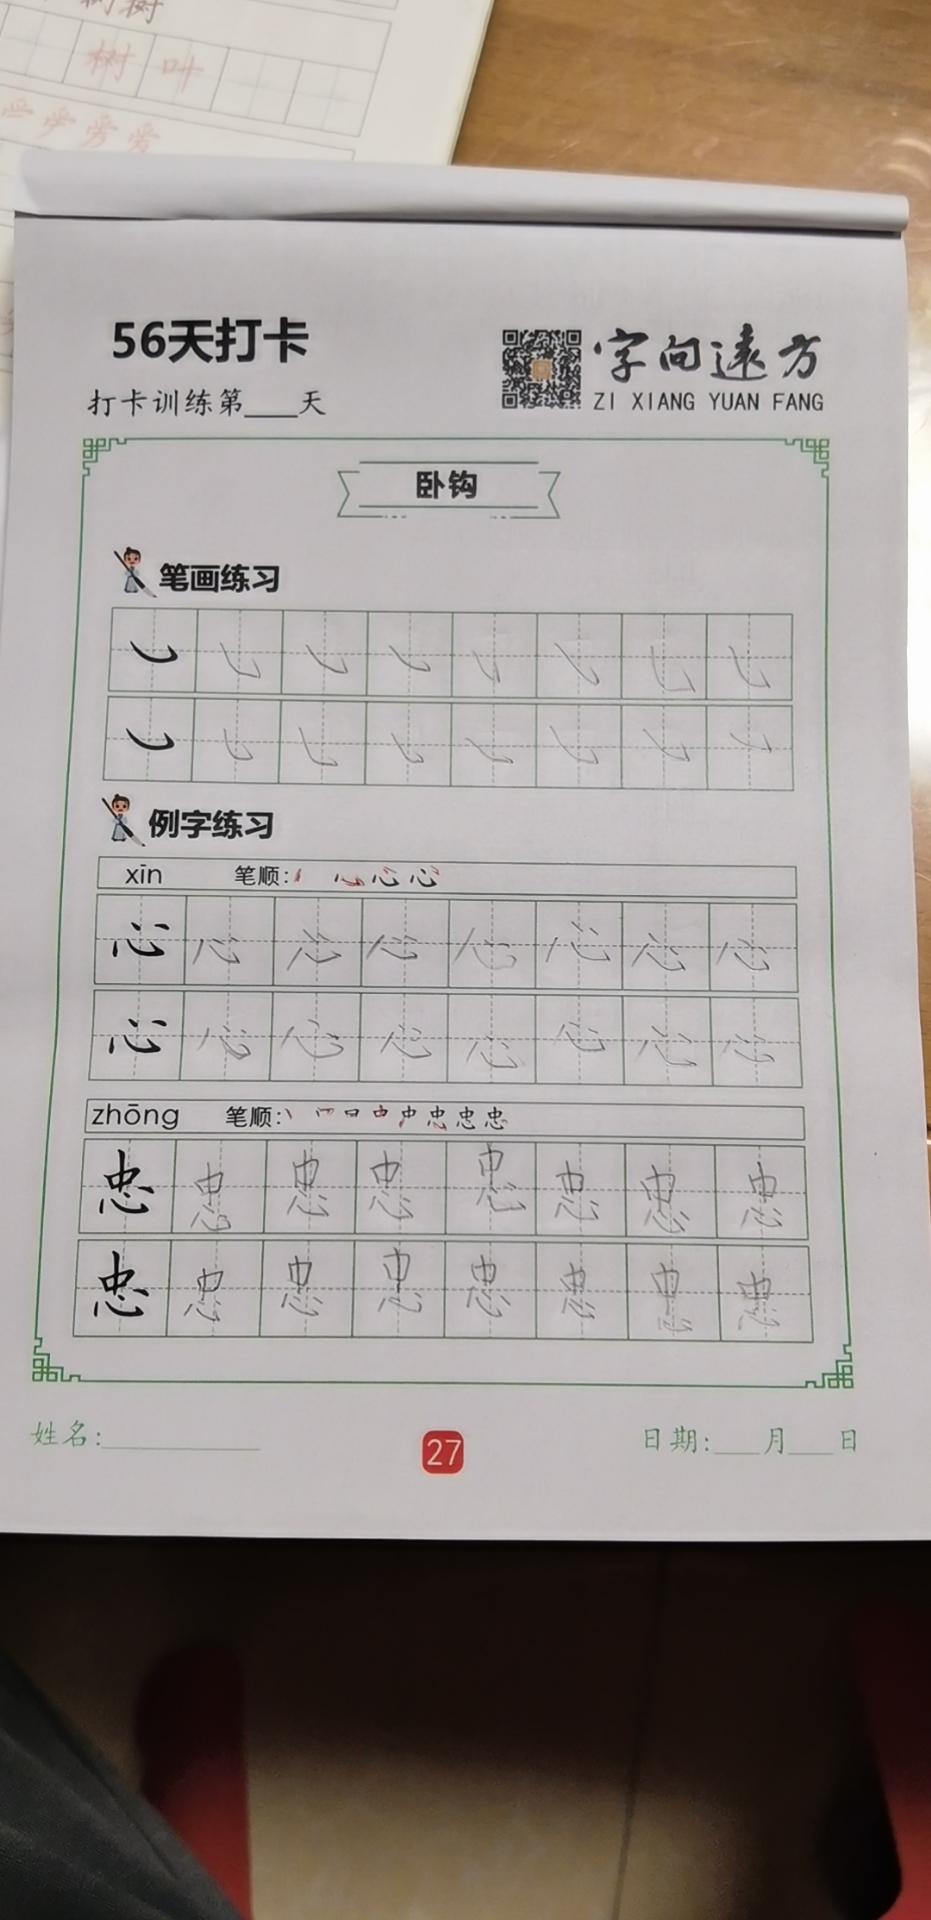 树 叶
56天打卡
打卡训练第___天
字向远方
ZI XIANG YUAN FANG
卧钩
笔画练习
例字练习
xīn 笔顺:
心 心 心 心 心 心 心 心
心 心 心 心 心 心 心 心
zhōng 笔顺:
忠 忠 忠 忠 忠 忠 忠 忠
忠 忠 忠 忠 忠 忠 忠 忠
姓名:
27
日期:___月___日